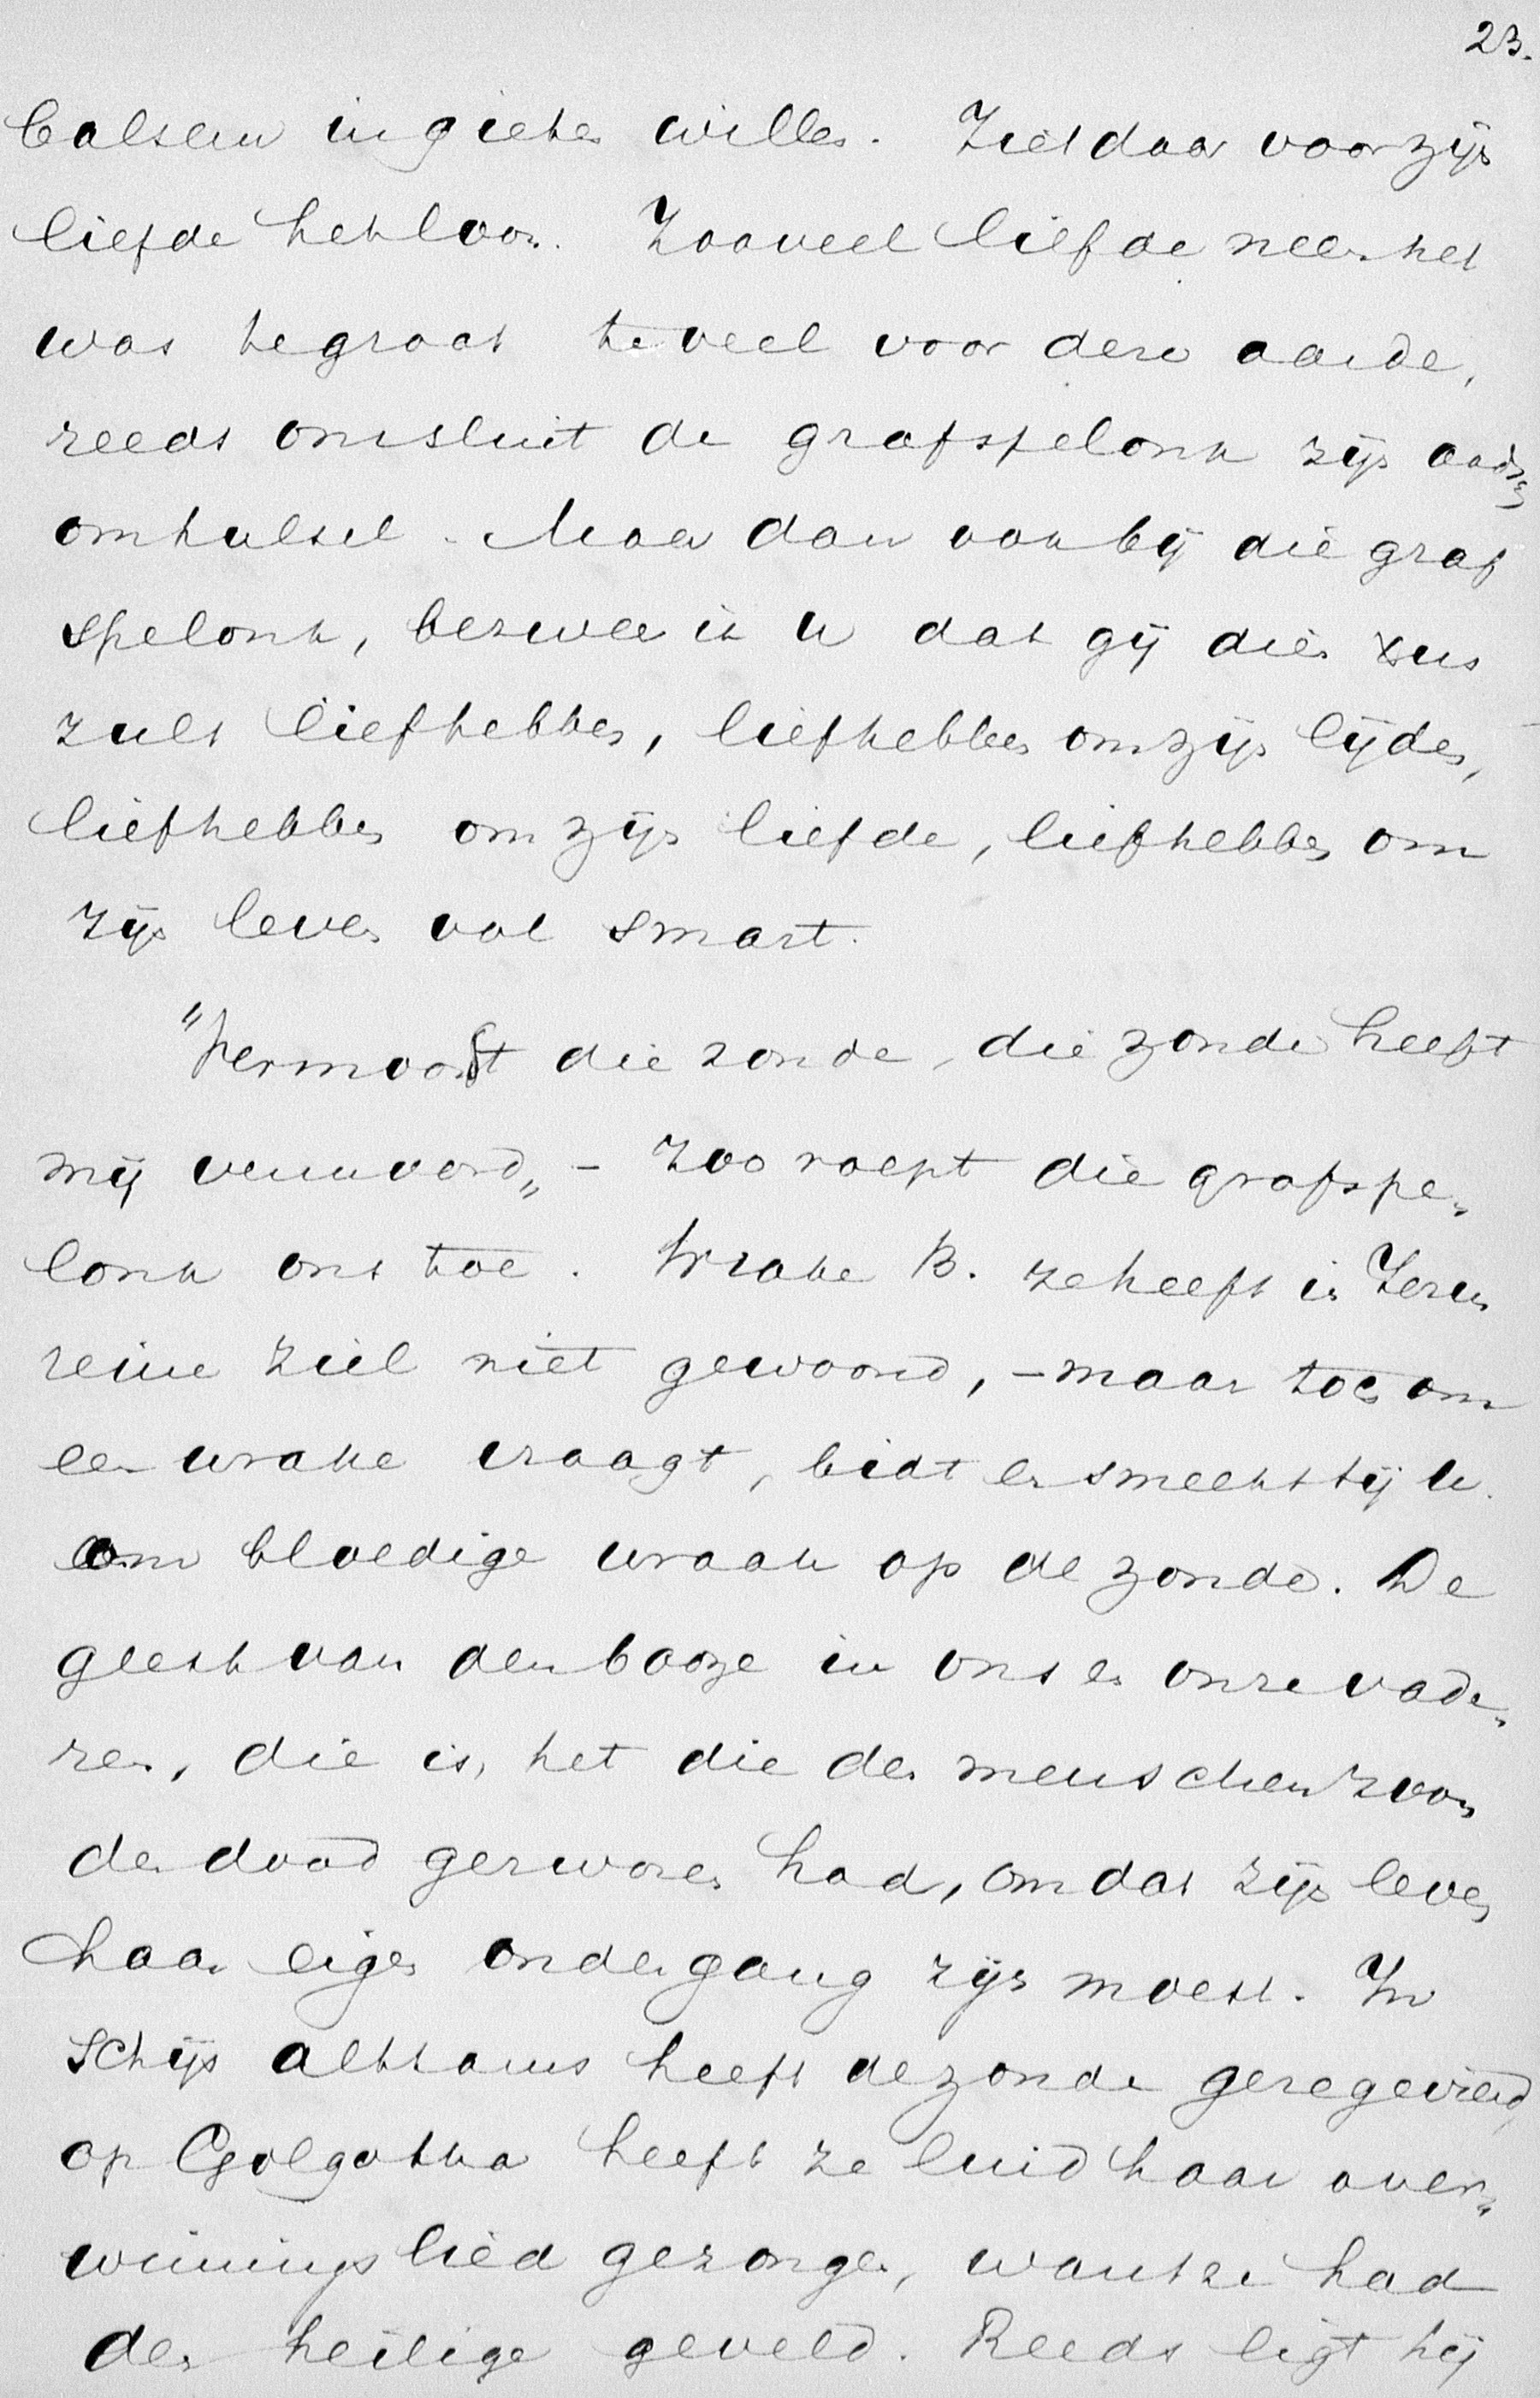 23.
balsem ingieten willen. Ziet daar voor zijn
liefde het loon. Zooveel liefde neen het
was te groot te veel voor deze aarde,
reeds omsluit de grafspelonk zijn aardsch
omhulsel. Maar dan ook bij die graf
spelonk, bezweer ik u dat gij dien Xus
zult liefhebben, liefhebben om zijn lijden,
liefhebben om zijn liefde, liefhebben om
zijn leven vol smart.
"Vermoordt die zonde, die zonde heeft
mij vermoord„ - zoo roept die grafspe„
lonk ons toe. Wrake B. ze heeft in Jezus
reine ziel niet gewoond, - maar toch om
een wrake vraagt, bidt en smeekt hij u.
om bloedige wraak op de zonde. De
geest van den booze in ons en onze vade„
ren, die is, het die den menschenzoon
den dood gezworen had, omdat zijn leven
haar eigen ondergang zijn moest. In
schijn althans heeft de zonde gezegevierd,
op Golgotha heeft ze luid haar over„
winningslied gezongen, want ze had
den heilige geveld. Reeds ligt hij